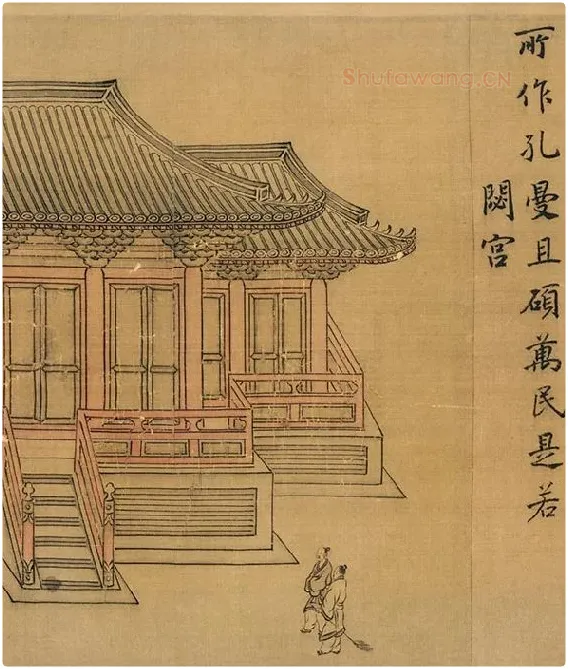 所作孔曼且碩萬民是若
閟宮
Shufawang.CN